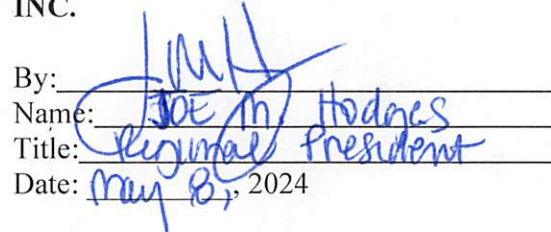 INC.
By: JMH
Name: JOE M. Hodges
Title: Regional President
Date: May 8, 2024